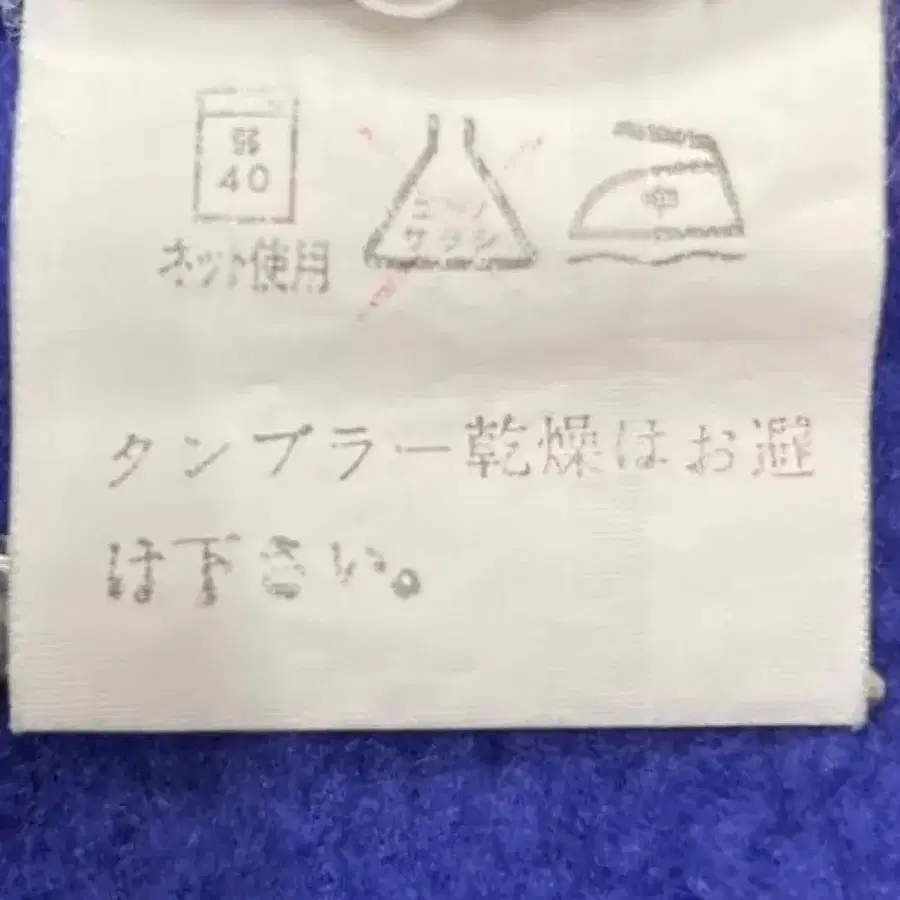 弱
40
ネット使用
エンソ
サラシ
中
タンプラー乾燥はお避
け下さい。